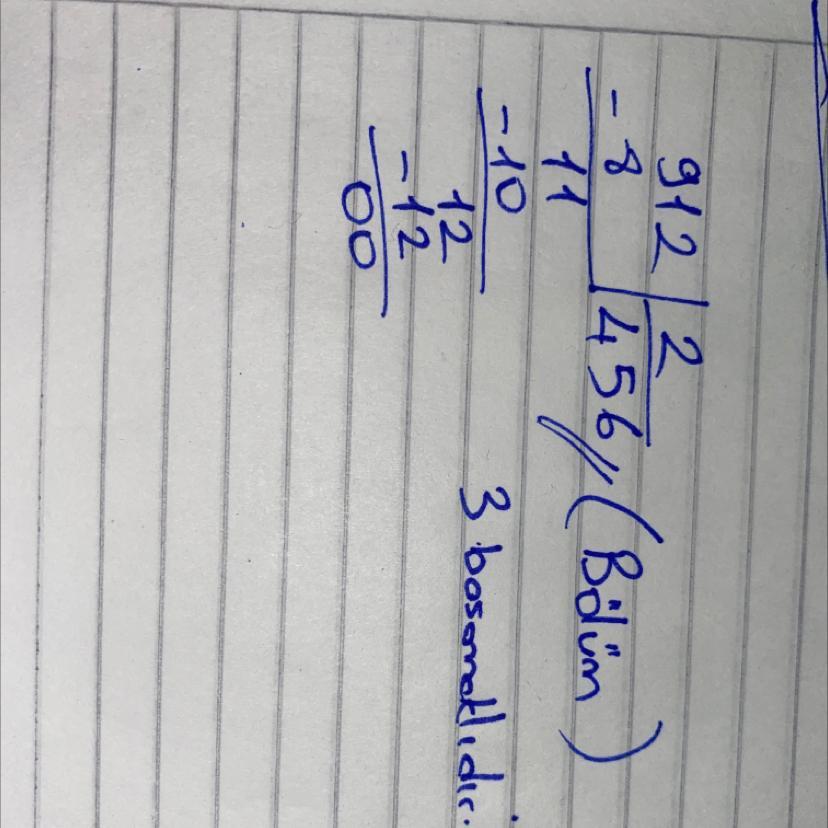 912 | 2
-8 456 // (Bölüm)
11
-10
12 3 basamaklıdır.
-12
00